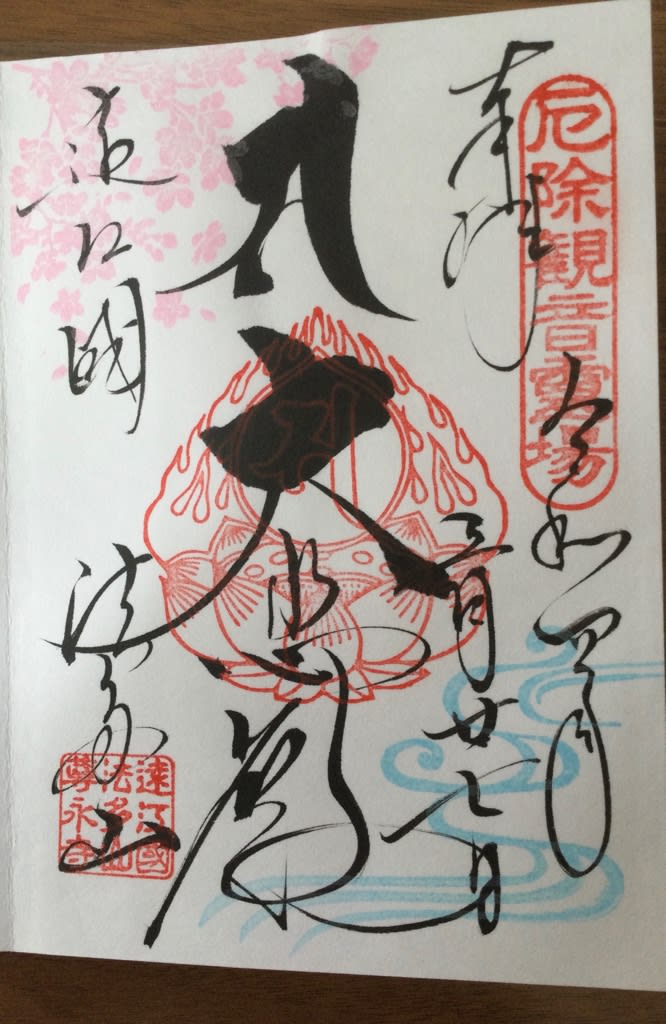 奉拝
厄除観音霊場
令和四年
三月廿七日
大悲殿
遠江國
法多山
遠江國
法多山
尊永寺